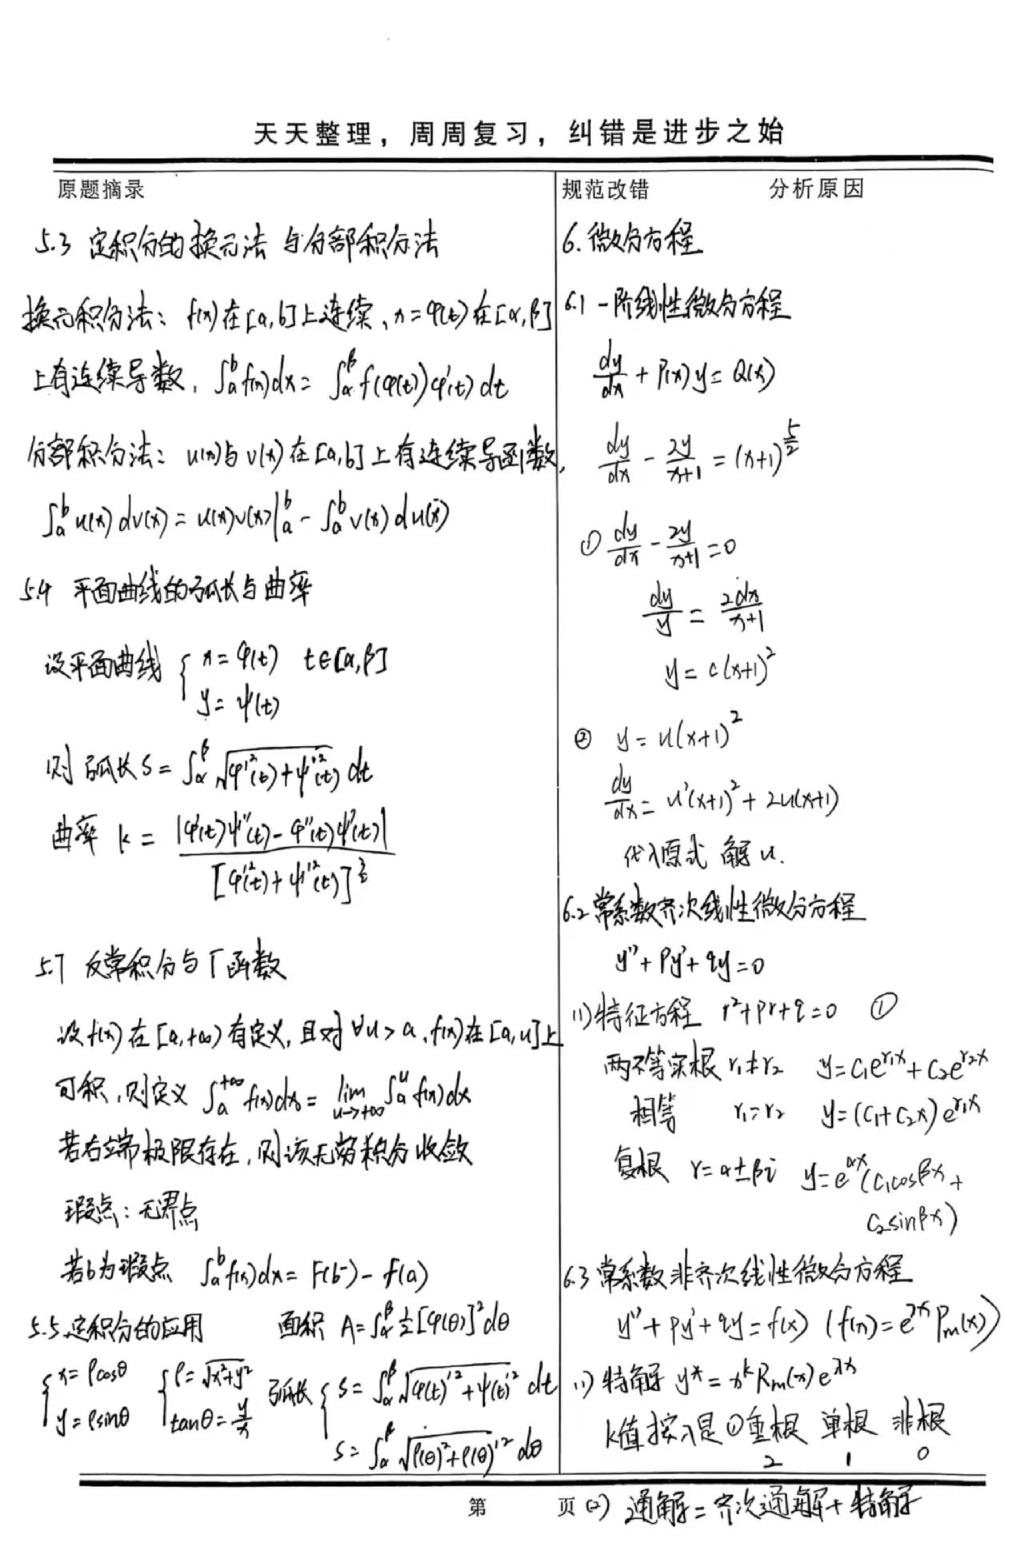 天天整理，周周复习，纠错是进步之始
原题摘录
5.3 定积分的换元法与分部积分法
换元积分法：f(x)在[a,b]上连续，x=φ(t)在[α,β]
上有连续导数，∫ₐᵇf(x)dx=∫_α^β f(φ(t))φ'(t)dt
分部积分法：u(x)与v(x)在[a,b]上有连续导函数，
∫ₐᵇu(x)dv(x)=u(x)v(x)|ₐᵇ-∫ₐᵇv(x)du(x)
5.4 平面曲线的弧长与曲率
设平面曲线 { x=φ(t) t∈[α,β]
y=ψ(t)
则弧长S=∫_α^β √(φ'²(t)+ψ'²(t)) dt
曲率 k=|φ'(t)ψ''(t)-φ''(t)ψ'(t)| / [φ'²(t)+ψ'²(t)]^(3/2)
5.7 反常积分与Γ函数
设f(x)在[a,+∞)有定义，且对∀u>a，f(x)在[a,u]上
可积，则定义 ∫ₐ^{+∞}f(x)dx=lim_{u→+∞}∫ₐᵘf(x)dx
若右端极限存在，则该无穷积分收敛
瑕点：无界点
若b为瑕点 ∫ₐᵇf(x)dx=F(b⁻)-F(a)
5.5 定积分的应用 面积 A=∫_α^β ½[φ(θ)]²dθ
{ x=ρcosθ { ρ=√(x²+y²) 弧长 { S=∫_α^β √(φ(t)'²+ψ(t)'²) dt
y=ρsinθ tanθ=y/x S=∫_α^β √(ρ(θ)²+ρ(θ)'²) dθ
规范改错 分析原因
6.微分方程
6.1 一阶线性微分方程
dy/dx+P(x)y=Q(x)
dy/dx-2y/(x+1)=(x+1)^(5/2)
① dy/dx-2y/(x+1)=0
dy/y=2dx/(x+1)
y=c(x+1)²
② y=u(x+1)²
dy/dx=u'(x+1)²+2u(x+1)
代入原式 解u.
6.2 常系数齐次线性微分方程
y''+py'+qy=0
(1)特征方程 r²+pr+q=0 ①
两不等实根 r₁≠r₂ y=C₁e^{r₁x}+C₂e^{r₂x}
相等 r₁=r₂ y=(C₁+C₂x)e^{r₁x}
复根 r=α±βi y=e^{αx}(C₁cosβx+
C₂sinβx)
6.3 常系数非齐次线性微分方程
y''+py'+qy=f(x) (f(x)=e^{λx}Pm(x))
(1)特解 y*=x^k Rm(x)e^{λx}
k值按λ是①重根 单根 非根
2 1 0
第 页
(2) 通解=齐次通解+特解